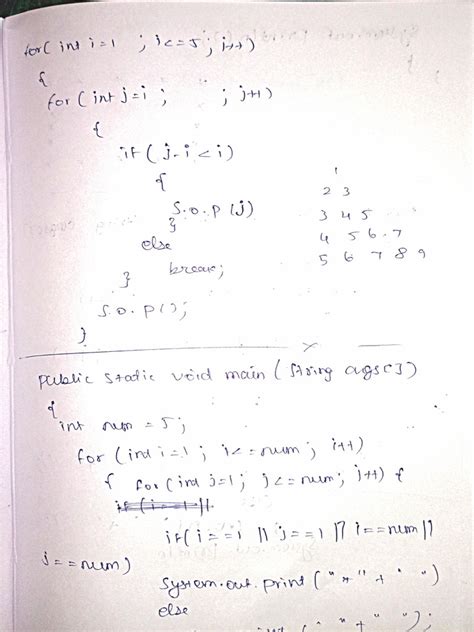 for( int i=1 ; i<=5; i++)
{
for (int j=i ; ; j++)
{
if( j-i<i)
{
S.o.p (j)
}
else
break;
}
S.o.p();
}
1
2 3
3 4 5
4 5 6 7
5 6 7 8 9
public static void main ( String args[])
{
int num = 5;
for (int i=1 ; i<=num ; i++)
{ for (int j=1; j<=num; j++) {
if(i==1 || j==1 || i==num ||
j==num)
System.out.print ("*"+" ")
else
" "+" ");